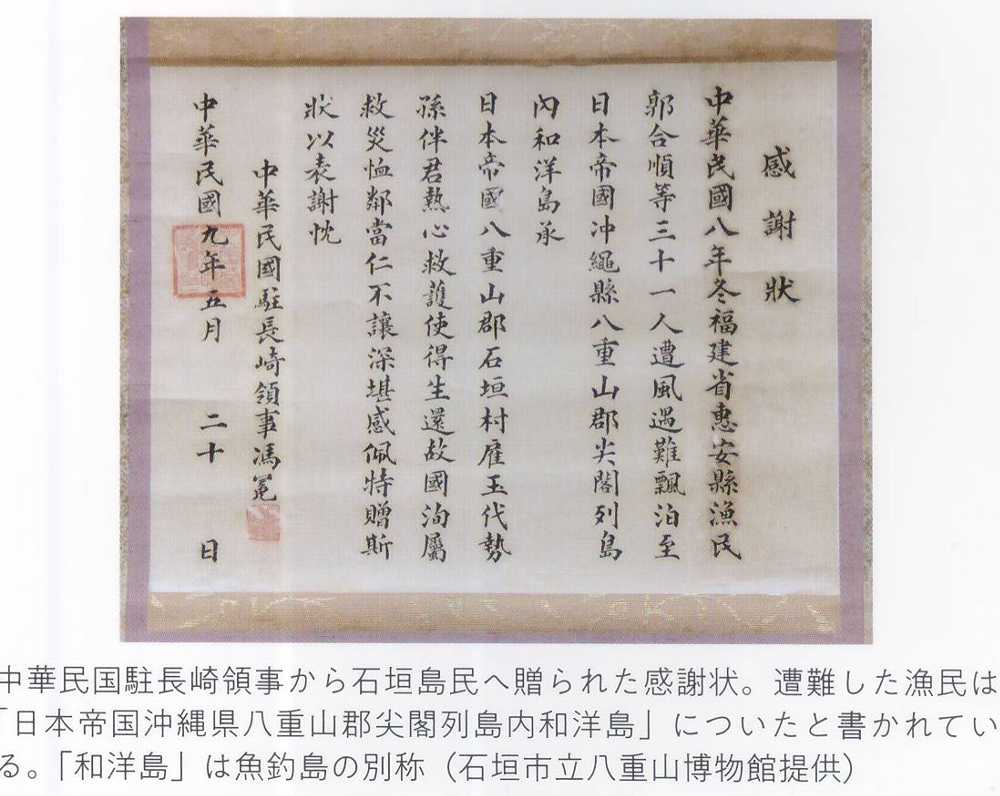 感謝狀
中華民國八年冬福建省惠安縣漁民
郭合順等三十一人遭風遇難飄泊至
日本帝國沖繩縣八重山郡尖閣列島
內和洋島承
日本帝國八重山郡石垣村雇玉代勢
孫伴君熱心救護使得生還故國洵屬
救災恤鄰當仁不讓深堪感佩特贈斯
狀以表謝忱
中華民國駐長崎領事馮冕
中華民國九年五月二十日
中華民国駐長崎領事から石垣島民へ贈られた感謝状。遭難した漁民は
「日本帝国沖縄県八重山郡尖閣列島内和洋島」についたと書かれてい
る。「和洋島」は魚釣島の別称（石垣市立八重山博物館提供）